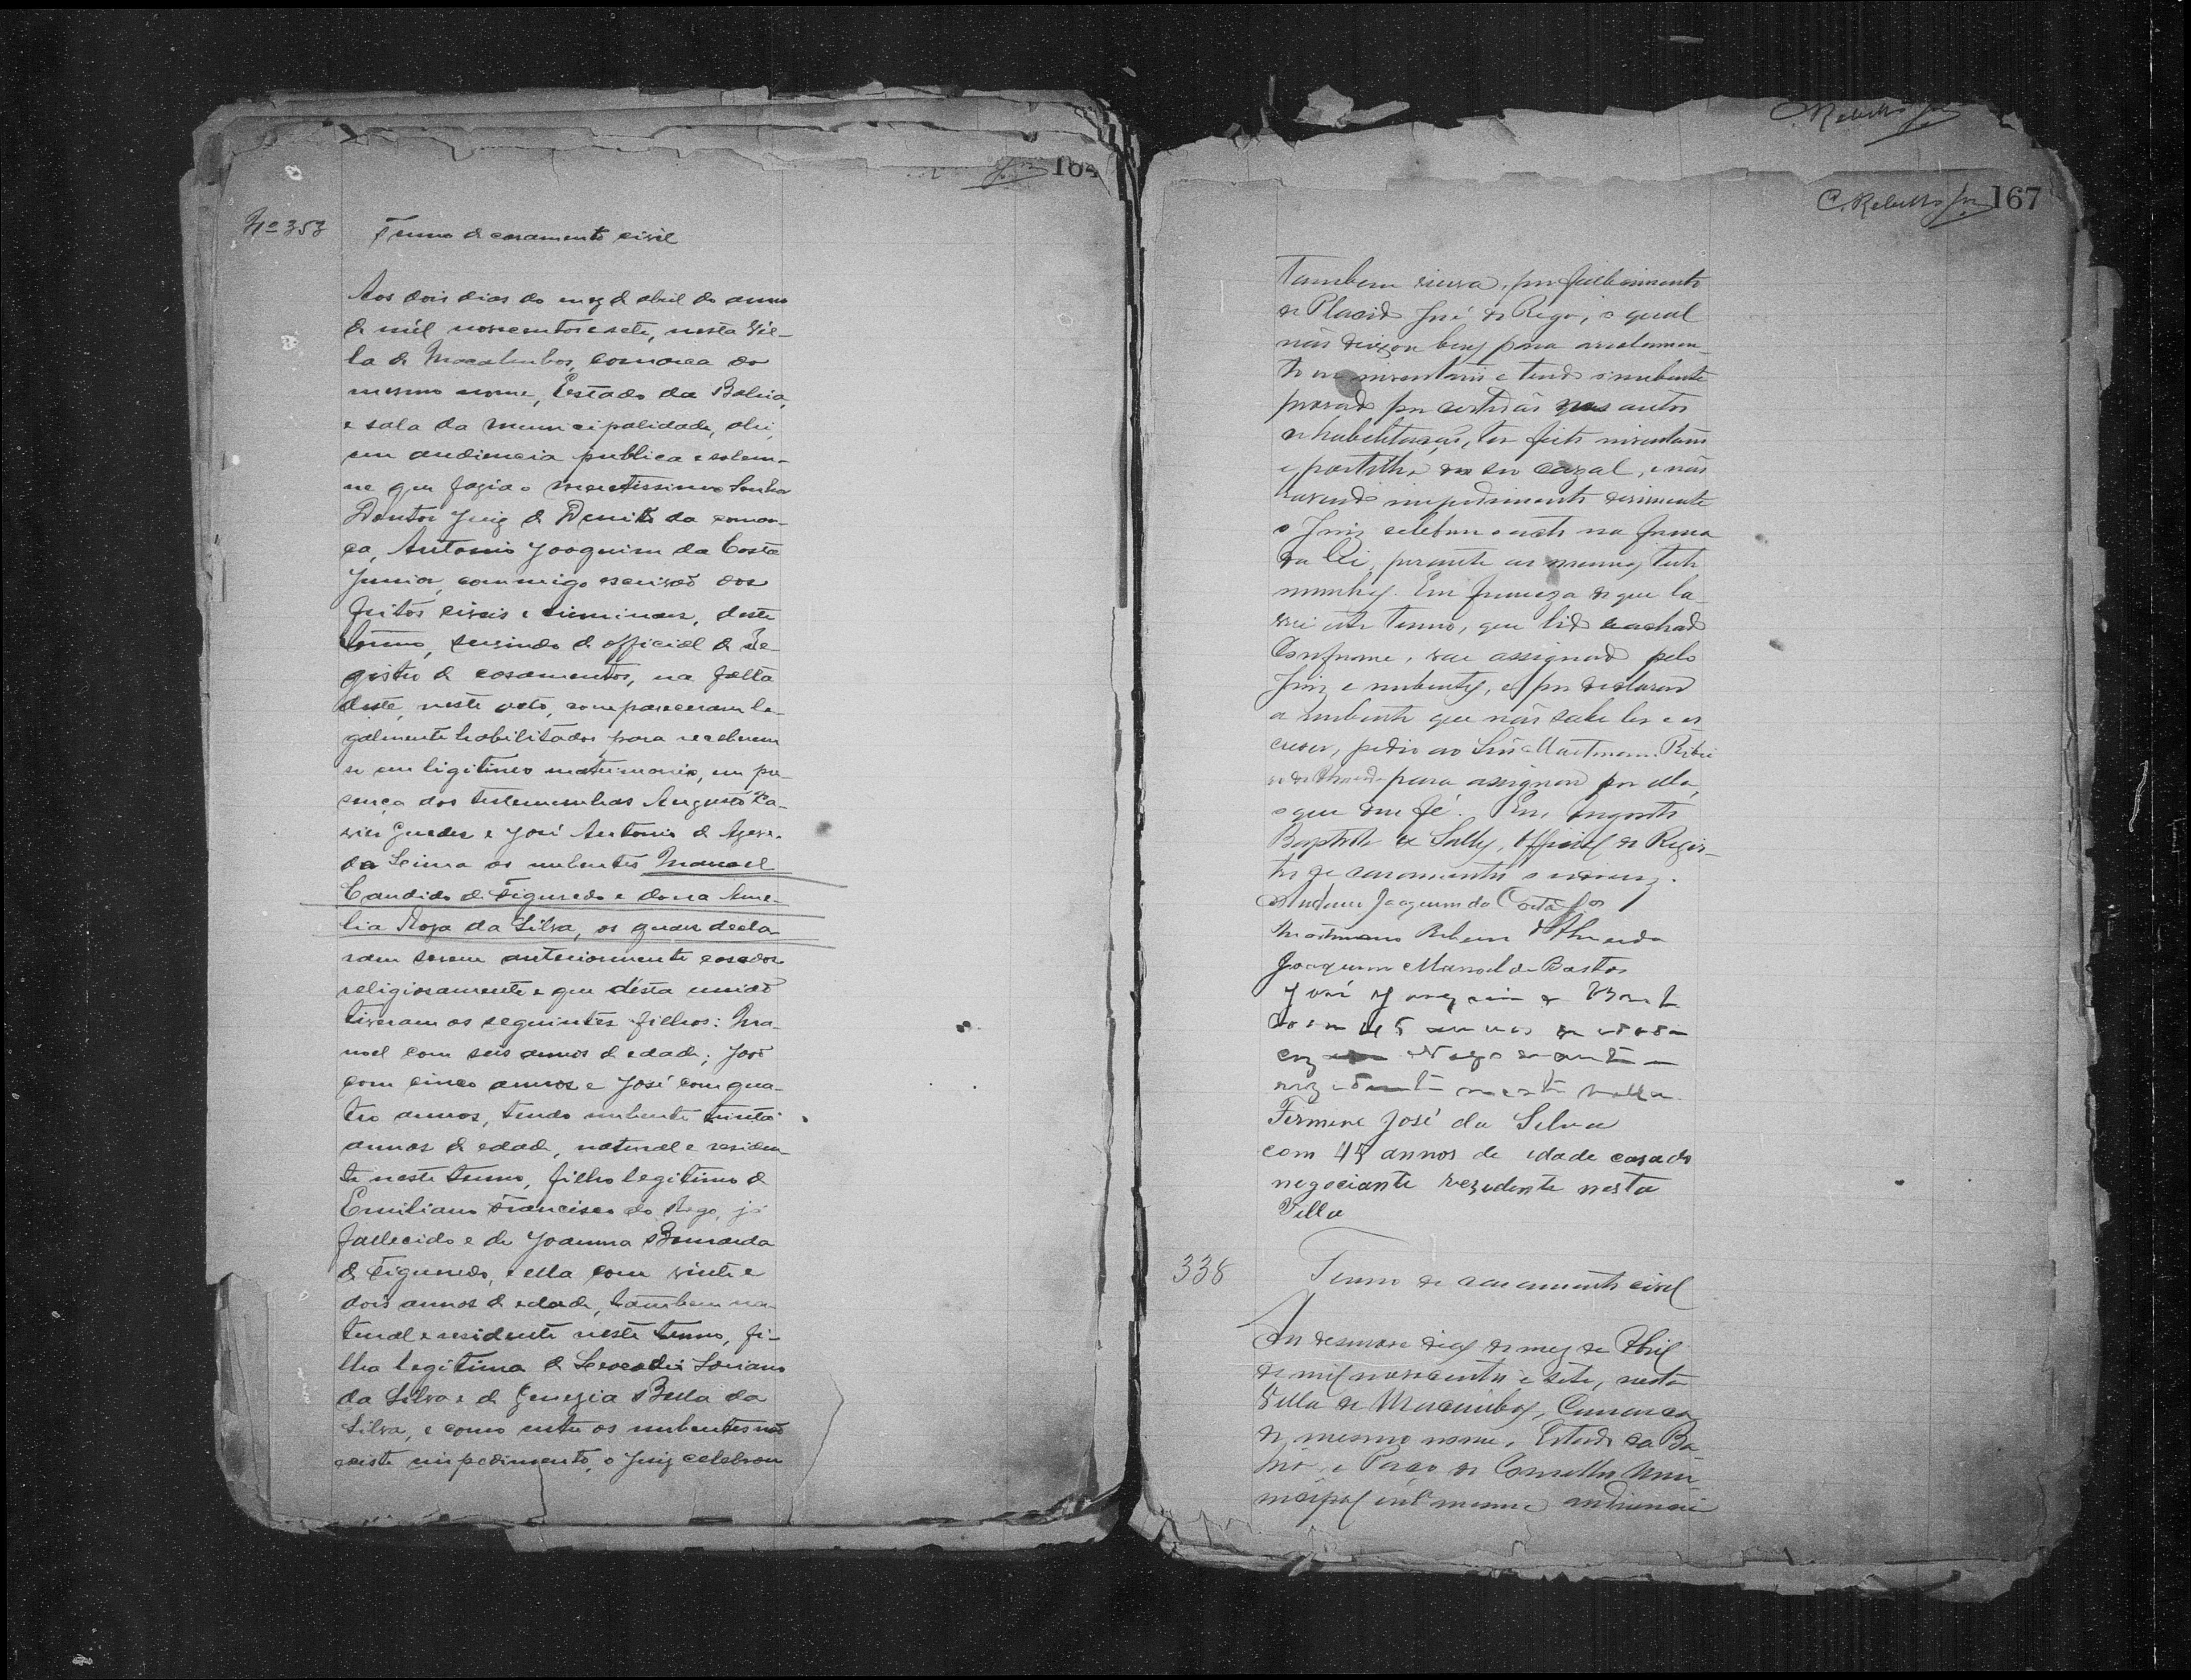 164
Nº 353
Termo de casamento civil
Aos dois dias do mez de abril do anno
de mil novecentos e sete, nesta Vil-
la de Macahubas, comarca do
mesmo nome, Estado da Bahia,
e sala da Municipalidade, ahi,
em audiencia publica e solem-
ne que fazia o meretissimo Senhor
Doutor Juiz de Direito da comar-
ca, Antonio Joaquim da Costa
Junior, commigo escrivão dos
feitos civeis e criminaes, deste
termo, servindo de official de Re-
gistro de casamentos, na falta
deste, neste acto, compareceram le-
galmente habilitados para receberem
se em ligitimo matrimonio, em pre-
sença das testemunhas Augusto Xa-
vier Guedes e José Antonio de Azeve-
do Lima os nubentes Manoel
Candido de Figueredo e dona Ame-
lia Roza da Silva, os quaes decla-
ram serem anteriormente casados
religiosamente e que désta união
tiveram os seguintes filhos: Ma-
noel com seis annos de edade; João
com cinco annos e José com qua-
tro annos, tendo nubente trinta
annos de edade, natural e residen-
te neste termo, filho legitimo de
Emiliano Francisco do Rego, já
fallecido e de Joanna Bernarda
de Figueredo, e ella com vinte e
dois annos de edade, tambem na-
tural e residente neste termo, fi-
lha legitima de Leocadio Soriano
da Silva e de Bella da
Silva, e como entre os nubentes não
existe impedimento, o Juiz celebrou
C. Rebello Jor 167
Tambem viuva, por fallecimento
de Placido José do Rego, o qual
não deixou bens para arrolamen-
to ou inventario e tendo o nubente
provado por certidão nos autos
de habilitação, ter feito inventario
e partilha do seu cazal, e não
havendo impedimento dirimente
o Juiz celebrou o acto na forma
da lei, perante as mesmas teste
munhas. Em firmeza do que la
vrei este termo, que lido e achado
Conforme, vae assignado pelo
Juiz e nubentes, e por declarar
a nubente que não sabe ler e es
crever, pedio ao Snr. Martiniano Ribei
ro de Almeida para assignar por ella,
o que dou fé. Eu, Augusto
Baptista de Salles, Official do Regis-
tro de casamentos o escrevy.
Antonio Joaquim da Costa Jor
Martiniano Ribeiro d'Almeida
Joaquim Manoel de Bastos
José Joaquim de
com 45 annos de idade
Negociante
rezidente nesta villa
Firmino José da Silva
com 45 annos de idade casado
negociante rezidente nesta
Villa
338
Termo de casamento civil
Aos desenove dias do mez de Abril
de mil novecentos e sete, nesta
Villa de Macaubas, Comarca
do mesmo nome, Estado da Ba
hia e Paço do Conselho Mu
nicipal em audiencia